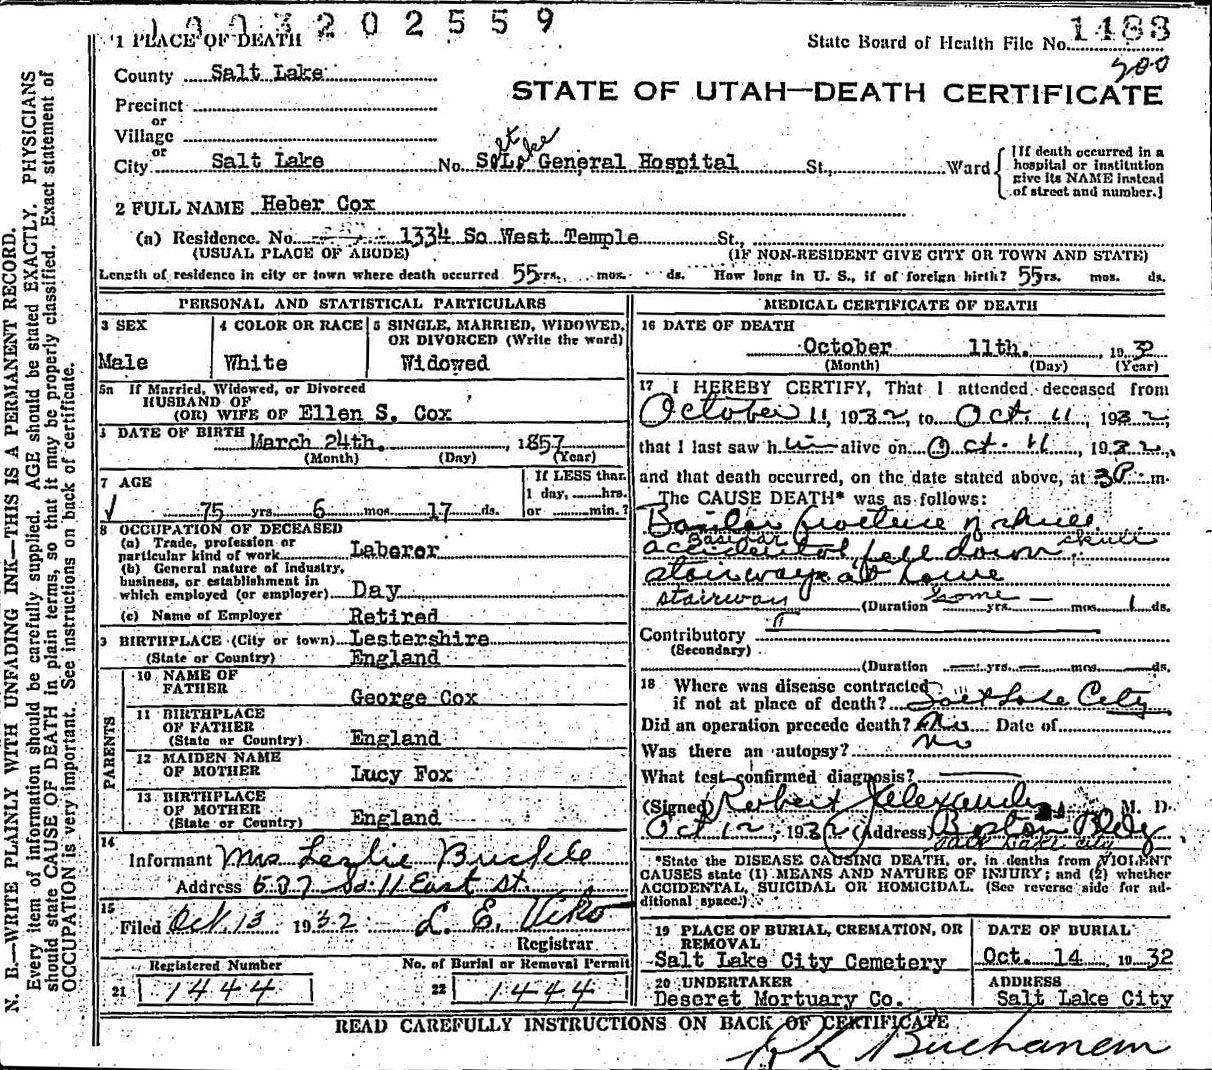 1003202559
1 PLACE OF DEATH
State Board of Health File No. 1483
200
County Salt Lake
STATE OF UTAH—DEATH CERTIFICATE
Precinct
or
Village
or
City Salt Lake No. S.L. General Hospital St., Ward
alt ake
[If death occurred in a
hospital or institution
give its NAME instead
of street and number.]
2 FULL NAME Heber Cox
(a) Residence. No. 1334 So West Temple St.,
(USUAL PLACE OF ABODE) (IF NON-RESIDENT GIVE CITY OR TOWN AND STATE)
Length of residence in city or town where death occurred 55 yrs. mos. ds. How long in U. S., if of foreign birth? 55 yrs. mos. ds.
PERSONAL AND STATISTICAL PARTICULARS
3 SEX
Male
4 COLOR OR RACE
White
5 SINGLE, MARRIED, WIDOWED,
OR DIVORCED (Write the word)
Widowed
5a If Married, Widowed, or Divorced
HUSBAND OF
(OR) WIFE OF Ellen S. Cox
DATE OF BIRTH March 24th. 1857
(Month) (Day) (Year)
7 AGE
75 yrs. 6 mos. 17 ds.
If LESS than
1 day, hrs.
or min.?
8 OCCUPATION OF DECEASED
(a) Trade, profession or
particular kind of work Laborer
(b) General nature of industry,
business, or establishment in
which employed (or employer) Day
(c) Name of Employer Retired
9 BIRTHPLACE (City or town) Lestershire
(State or Country) England
PARENTS
10 NAME OF
FATHER George Cox
11 BIRTHPLACE
OF FATHER
(State or Country) England
12 MAIDEN NAME
OF MOTHER Lucy Fox
13 BIRTHPLACE
OF MOTHER
(State or Country) England
14
Informant Mrs Leslie Buckle
Address 537 So 11 East St.
15
Filed Oct. 13 1932 L. E. Viko
Registrar
Registered Number
21 1444
No. of Burial or Removal Permit
22 1444
MEDICAL CERTIFICATE OF DEATH
16 DATE OF DEATH
October 11th. 1932
(Month) (Day) (Year)
17 I HEREBY CERTIFY, That I attended deceased from
October 11, 1932, to Oct. 11, 1932,
that I last saw him alive on Oct. 11, 1932,
and that death occurred, on the date stated above, at 3 P. m.
The CAUSE DEATH* was as follows:
Basilar fracture of skull
Basilar skull
accidental fell down
stairways at home
stairway home
(Duration yrs. — mos. 1 ds.
Contributory
(Secondary)
(Duration yrs. mos. ds.
18 Where was disease contracted
if not at place of death? Salt Lake City
Did an operation precede death? No Date of
Was there an autopsy? No
What test confirmed diagnosis?
(Signed) Robert J Alexander M. D.
Oct 12, 1932 (Address) Boston Bldg
Salt Lake City
*State the DISEASE CAUSING DEATH, or, in deaths from VIOLENT
CAUSES state (1) MEANS AND NATURE OF INJURY; and (2) whether
ACCIDENTAL, SUICIDAL OR HOMICIDAL. (See reverse side for ad-
ditional space.)
19 PLACE OF BURIAL, CREMATION, OR
REMOVAL
Salt Lake City Cemetery
DATE OF BURIAL
Oct. 14 1932
20 UNDERTAKER
Deseret Mortuary Co.
ADDRESS
Salt Lake City
READ CAREFULLY INSTRUCTIONS ON BACK OF CERTIFICATE
R L Buchanan
N. B.—WRITE PLAINLY WITH UNFADING INK—THIS IS A PERMANENT RECORD.
Every item of information should be carefully supplied. AGE should be stated EXACTLY. PHYSICIANS
should state CAUSE OF DEATH in plain terms, so that it may be properly classified. Exact statement of
OCCUPATION is very important. See instructions on back of certificate.